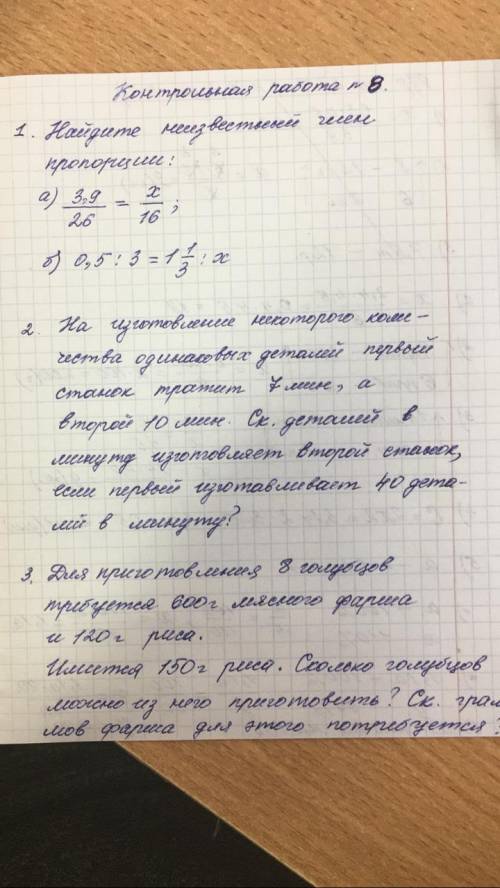 Контрольная работа № 8.
1. Найдите неизвестный член
пропорции:
а) 3,9/26 = x/16;
б) 0,5 : 3 = 1 1/3 : x
2. На изготовление некоторого коли-
чества одинаковых деталей первый
станок тратит 7 мин, а
второй 10 мин. Ск. деталей в
минуту изготовляет второй станок,
если первый изготавливает 40 дета-
лей в минуту?
3. Для приготовления 8 голубцов
требуется 600г мясного фарша
и 120г риса.
Имеется 150г риса. Сколько голубцов
можно из него приготовить? Ск. грам
мов фарша для этого потребуется?